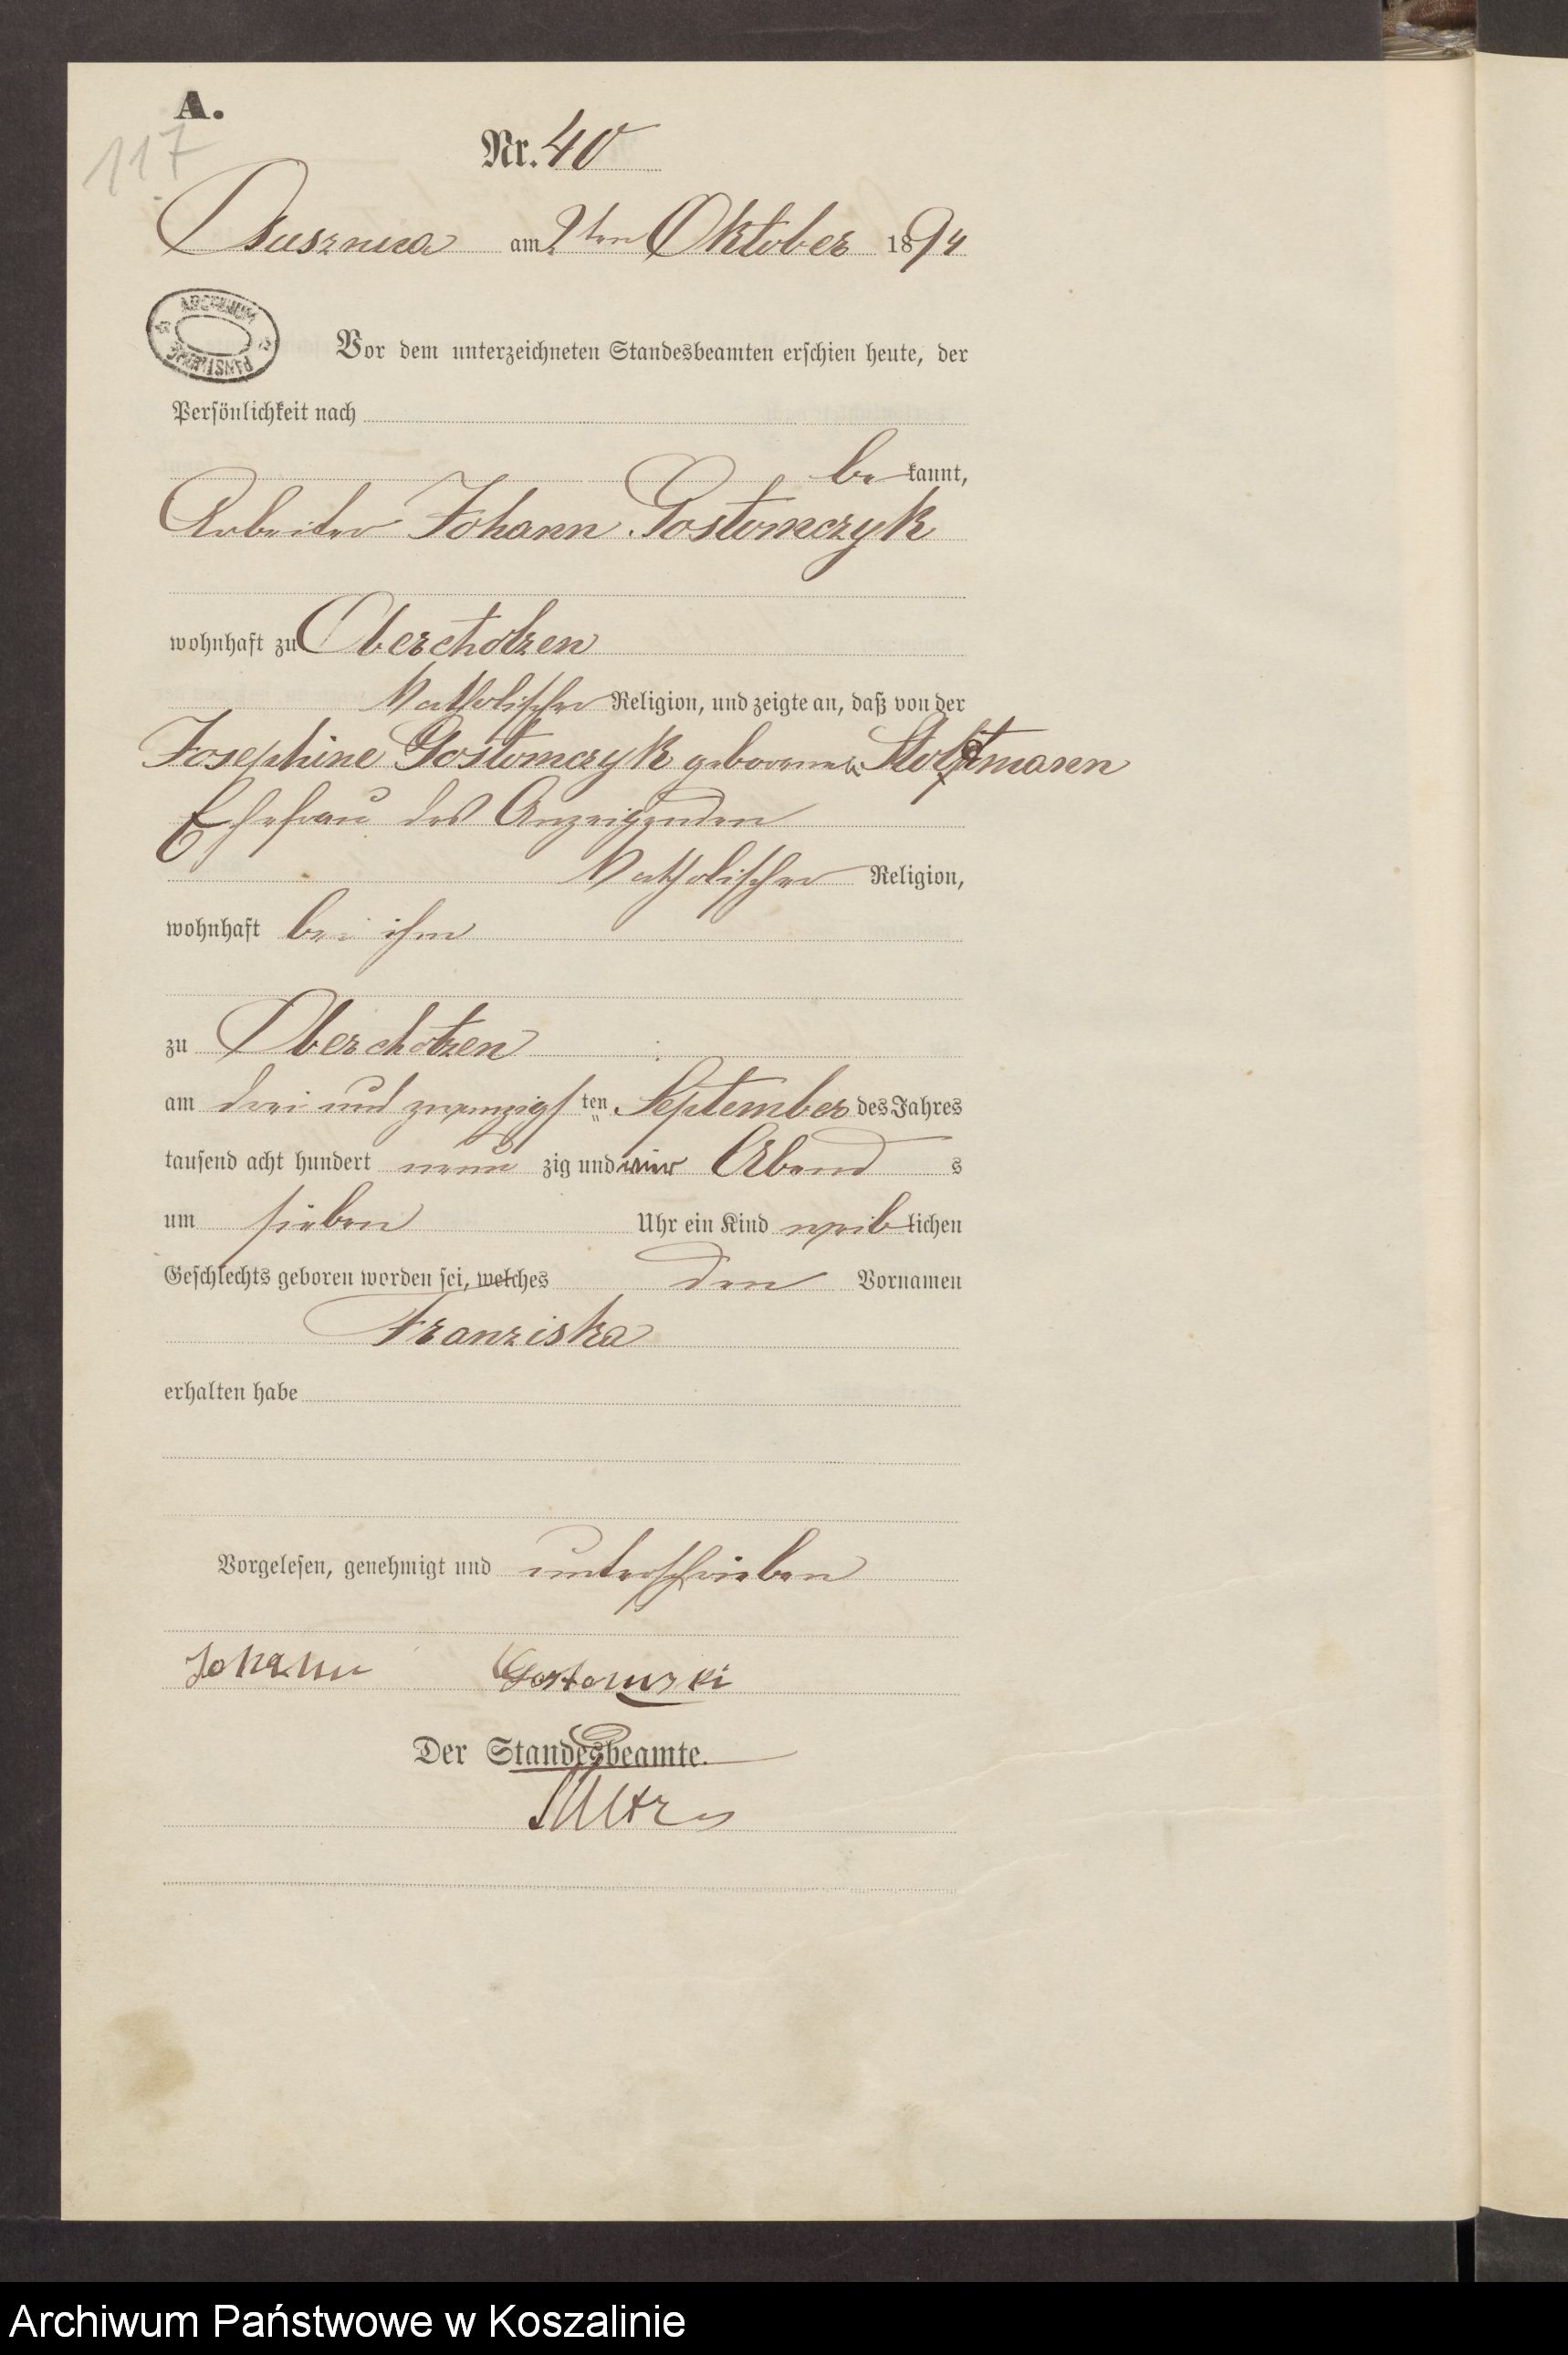 A.
117
Nr. 40
am 2ten Oktober 1894
ARCHIWUM PAŃSTWOWE
Vor dem unterzeichneten Standesbeamten erschien heute, der
Persönlichkeit nach
be kannt,
Arbeiter Johann Gostomczyk
wohnhaft zu Oberchotzen
Katholischer Religion, und zeigte an, daß von der
Josephine Gostomczyk geborene
Ehefrau des Anzeigenden
Katholischer Religion,
wohnhaft bei ihm
zu Oberchotzen
am drei und zwanzigs ten September des Jahres
tausend acht hundert neun zig und vier Abend s
um sieben Uhr ein Kind weib lichen
Geschlechts geboren worden sei, welches den Vornamen
Franziska
erhalten habe
Vorgelesen, genehmigt und unterschrieben
Johann Gostomzki
Der Standesbeamte.
Archiwum Państwowe w Koszalinie